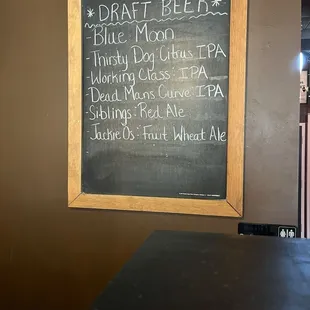 *DRAFT BEER*
-Blue Moon
-Thirsty Dog: Citrus IPA
-Working Class: IPA
-Dead Mans Curve: IPA
-Siblings: Red Ale
-Jackie Os: Fruit Wheat Ale